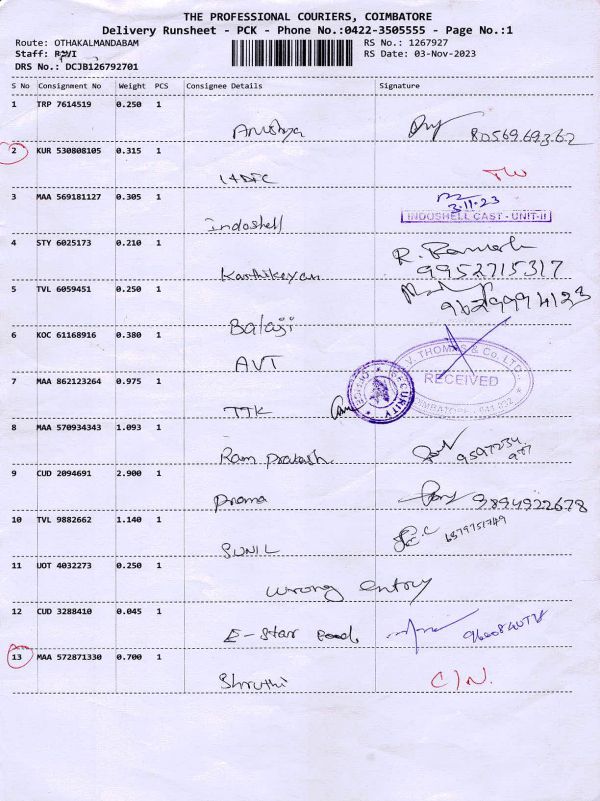 THE PROFESSIONAL COURIERS, COIMBATORE
Delivery Runsheet - PCK - Phone No.:0422-3505555 - Page No.:1
Route: OTHAKALMANDABAM RS No.: 1267927
Staff: RS Date: 03-Nov-2023
DRS No.: DCJB126792701
S No Consignment No Weight PCS Consignee Details Signature
1 TRP 7614519 0.250 1
Anushya
2 KUR 530808105 0.315 1
HDFC TW
3 MAA 569181127 0.305 1
3.11.23
Indoshell INDOSHELL CAST - UNIT-II
4 STY 6025173 0.210 1
R. Ramesh
Karthikeyan 9952715317
5 TVL 6059451 0.250 1
Balaji
6 KOC 61168916 0.380 1
AVT
V. THOMAS & Co. LTD.
7 MAA 862123264 0.975 1
RECEIVED
SECURITY
TTK
8 MAA 570934343 1.093 1
Ram Prakash 9597234
977
9 CUD 2094691 2.900 1
Prama 9894922678
10 TVL 9882662 1.140 1
SUNIL
11 UOT 4032273 0.250 1
Wrong entry
12 CUD 3288410 0.045 1
E-Star
13 MAA 572871330 0.700 1
Shruthi C/N.